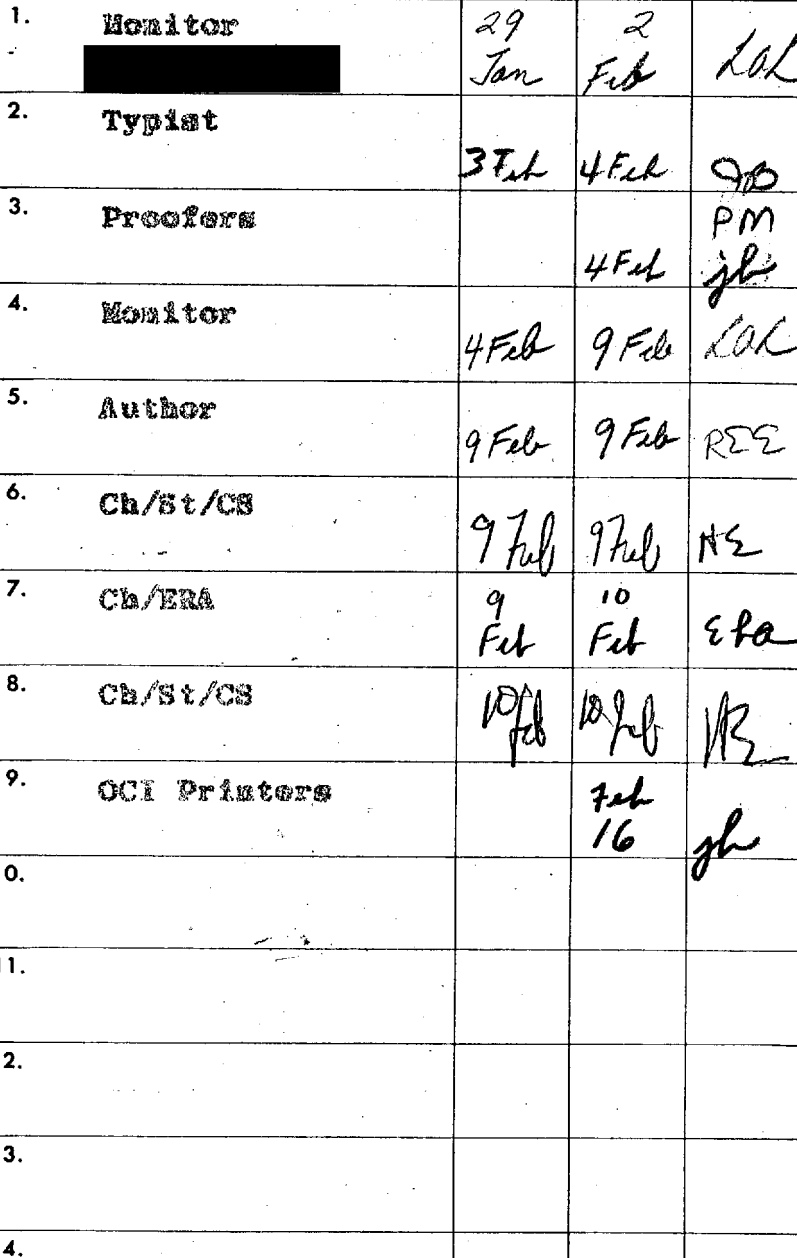 1. Monitor 29 Jan 2 Feb LOL
2. Typist 3 Feb 4 Feb
3. Proofers 4 Feb PM jh
4. Monitor 4 Feb 9 Feb LOL
5. Author 9 Feb 9 Feb REE
6. Ch/St/CS 9 Feb 9 Feb HE
7. Ch/ERA 9 Feb 10 Feb
8. Ch/St/CS 10 Feb 10 Feb
9. OCI Printers Feb 16 jh
0.
1.
2.
3.
4.